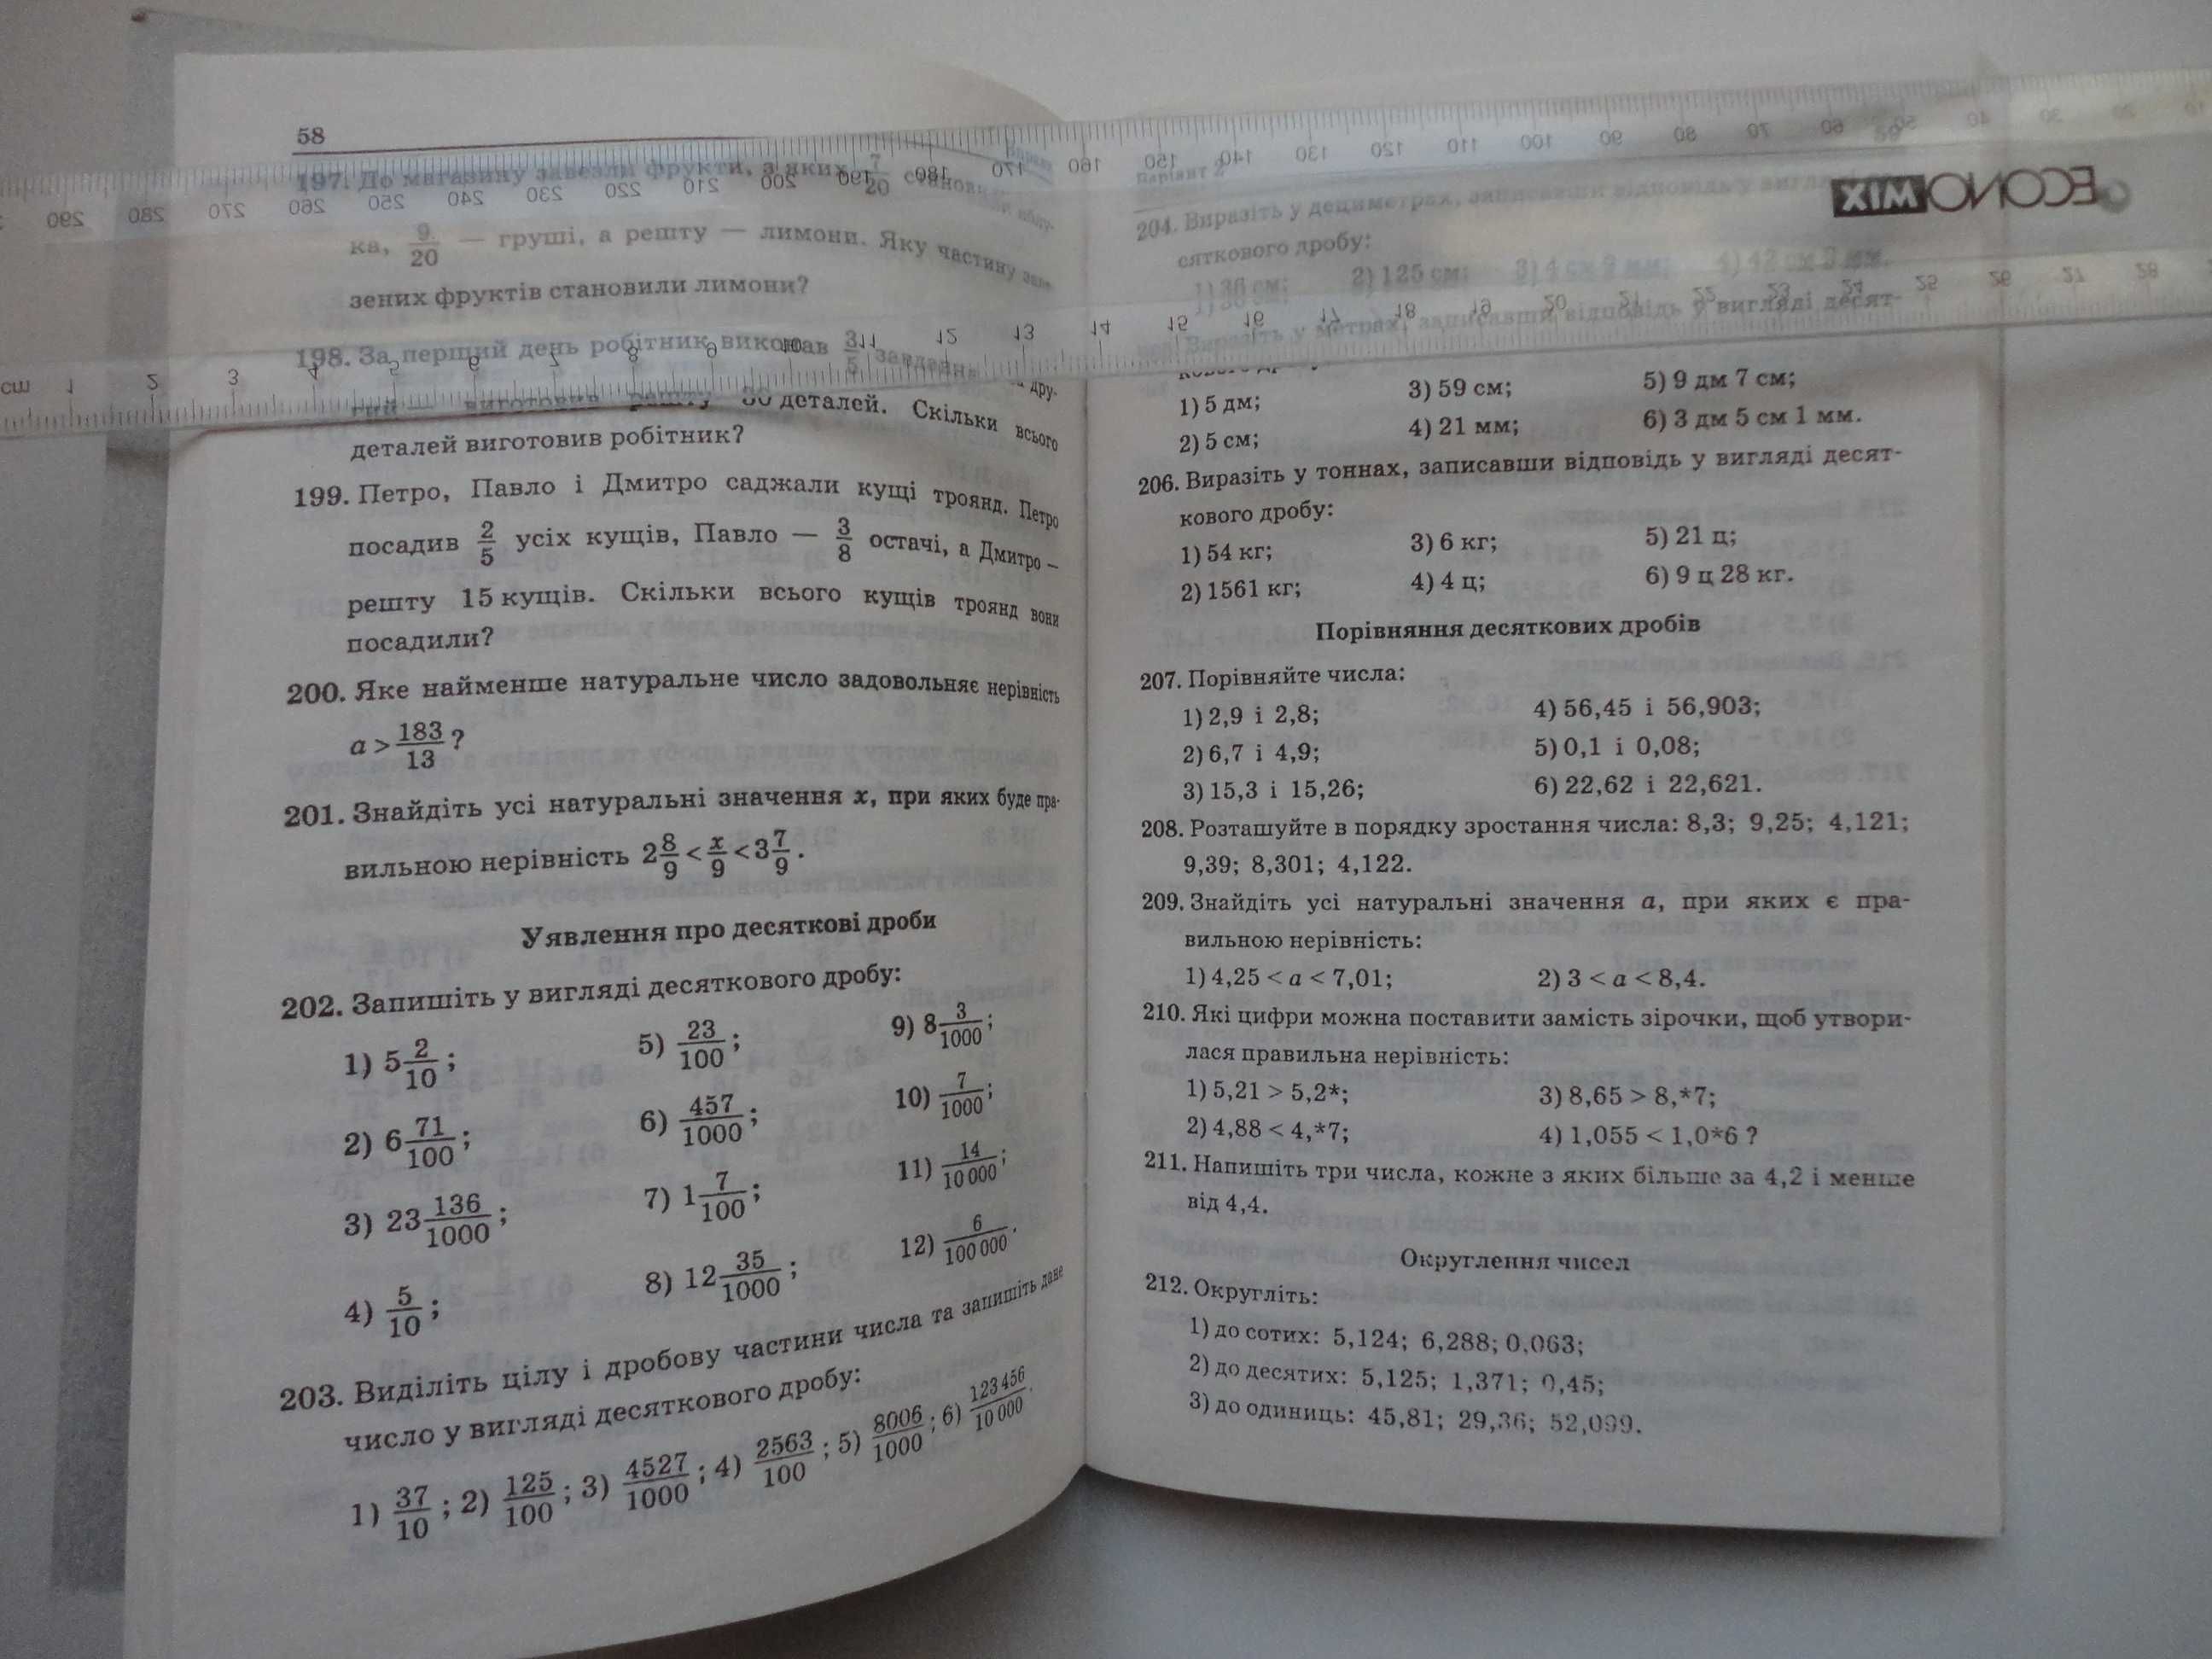 58
197. До магазину завезли фрукти, з яких 7/20 становили
ка, 9/20 — груші, а решту — лимони. Яку частину
зених фруктів становили лимони?
198. За перший день робітник виконав 3/5 завдання,
дру-
гий — виготовив решту деталей. Скільки всього
деталей виготовив робітник?
199. Петро, Павло і Дмитро саджали кущі троянд. Петро
посадив 2/5 усіх кущів, Павло — 3/8 остачі, а Дмитро –
решту 15 кущів. Скільки всього кущів троянд вони
посадили?
200. Яке найменше натуральне число задовольняє нерівність
a > 183/13 ?
201. Знайдіть усі натуральні значення x, при яких буде пра-
вильною нерівність 2 8/9 < x/9 < 3 7/9.
Уявлення про десяткові дроби
202. Запишіть у вигляді десяткового дробу:
1) 5 2/10; 5) 23/100; 9) 8 3/1000;
2) 6 71/100; 6) 457/1000; 10) 7/1000;
3) 23 136/1000; 7) 1 7/100; 11) 14/10 000;
4) 5/10; 8) 12 35/1000; 12) 6/100 000.
203. Виділіть цілу і дробову частини числа та запишіть дане
число у вигляді десяткового дробу:
1) 37/10; 2) 125/100; 3) 4527/1000; 4) 2563/100; 5) 8006/1000; 6) 123 456/10 000.
Варіант 2
204. Виразіть у дециметрах, записавши відповідь у вигляді
сяткового дробу:
1) 36 см; 2) 125 см; 3) 4 см 9 мм; 4) 42 см 3 мм.
Виразіть у метрах, записавши відповідь у вигляді десят-
кового дробу
1) 5 дм; 3) 59 см; 5) 9 дм 7 см;
2) 5 см; 4) 21 мм; 6) 3 дм 5 см 1 мм.
206. Виразіть у тоннах, записавши відповідь у вигляді десят-
кового дробу:
1) 54 кг; 3) 6 кг; 5) 21 ц;
2) 1561 кг; 4) 4 ц; 6) 9 ц 28 кг.
Порівняння десяткових дробів
207. Порівняйте числа:
1) 2,9 і 2,8; 4) 56,45 і 56,903;
2) 6,7 і 4,9; 5) 0,1 і 0,08;
3) 15,3 і 15,26; 6) 22,62 і 22,621.
208. Розташуйте в порядку зростання числа: 8,3; 9,25; 4,121;
9,39; 8,301; 4,122.
209. Знайдіть усі натуральні значення a, при яких є пра-
вильною нерівність:
1) 4,25 < a < 7,01; 2) 3 < a < 8,4.
210. Які цифри можна поставити замість зірочки, щоб утвори-
лася правильна нерівність:
1) 5,21 > 5,2*; 3) 8,65 > 8,*7;
2) 4,88 < 4,*7; 4) 1,055 < 1,0*6 ?
211. Напишіть три числа, кожне з яких більше за 4,2 і менше
від 4,4.
Округлення чисел
212. Округліть:
1) до сотих: 5,124; 6,288; 0,063;
2) до десятих: 5,125; 1,371; 0,45;
3) до одиниць: 45,81; 29,36; 52,099.
ECONOMIX
290 280 270 260 250 240 230 220 210 200 190 180 170 160 150 140 130 120 110 100 90 80 70 60 50 40 30 20 10
cm 1 2 3 4 5 6 7 8 9 10 11 12 13 14 15 16 17 18 19 20 21 22 23 24 25 26 27 28